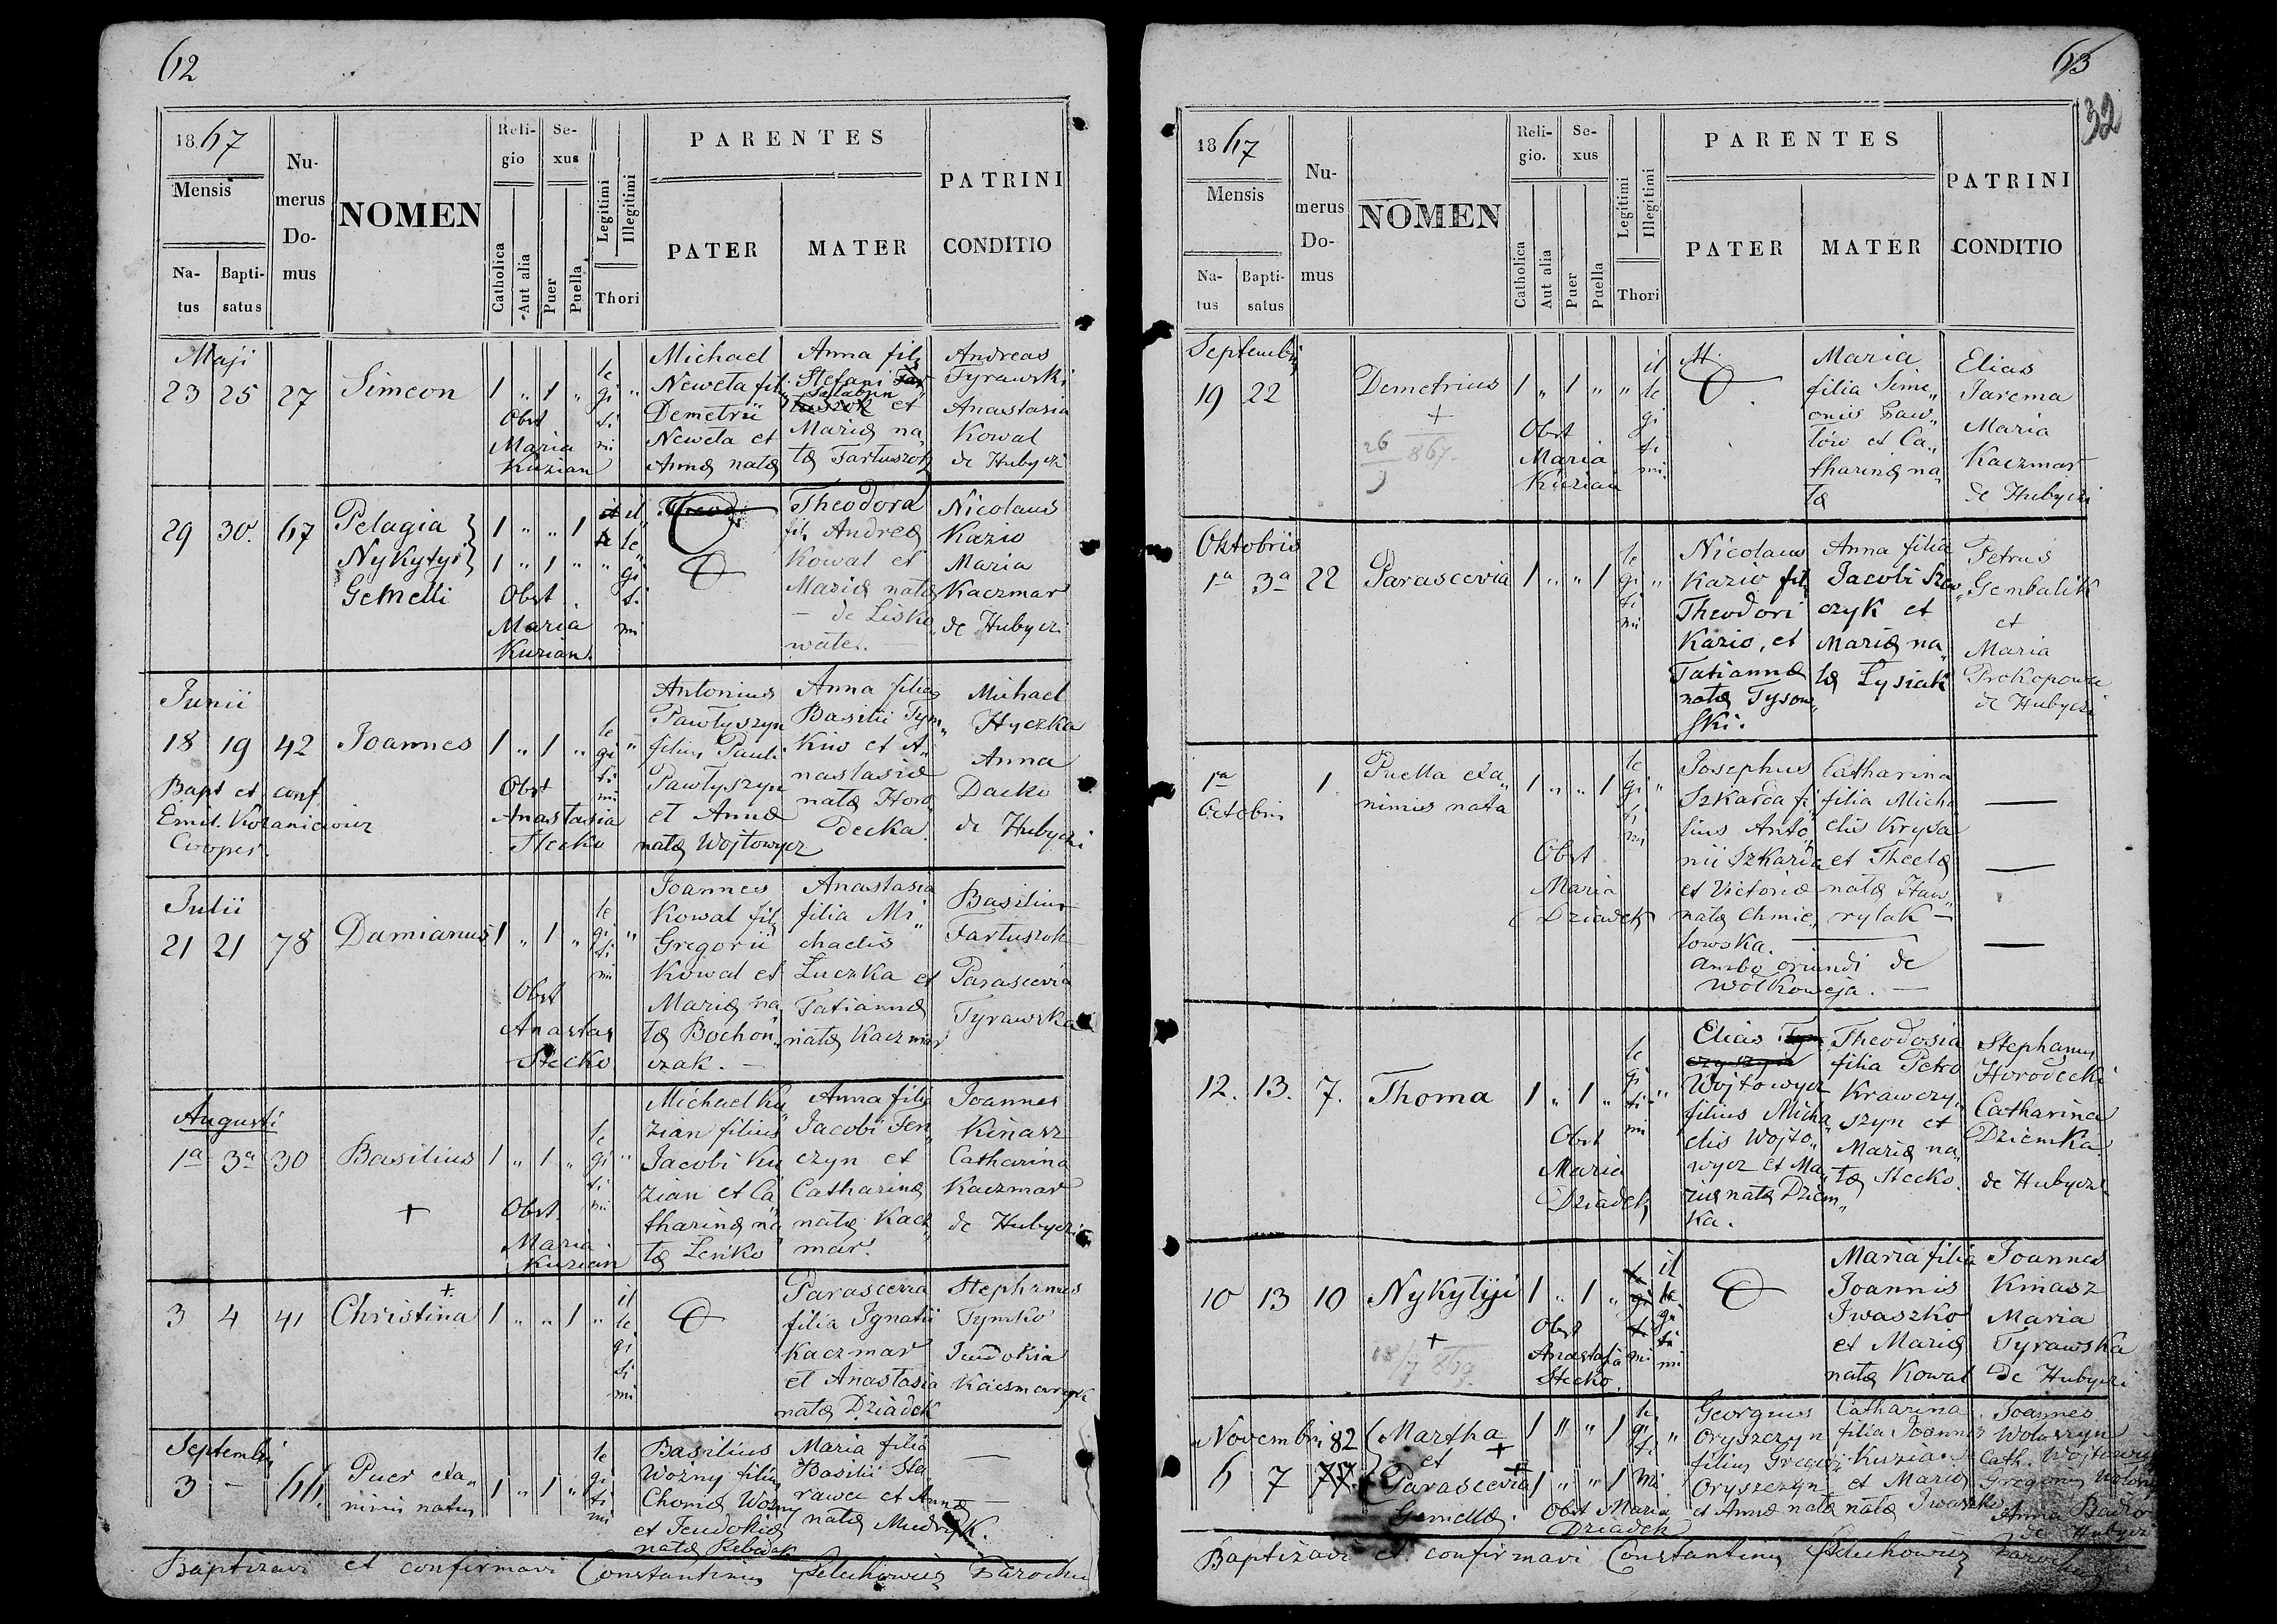 62
18.67
Mensis
Na-
tus
Bapti-
satus
Nu-
merus
Do-
mus
NOMEN
Reli-
gio
Catholica
Aut alia
Se-
xus
Puer
Puella
Legitimi
Illegitimi
Thori
PARENTES
PATER
MATER
PATRINI
CONDITIO
Maji
23 25 27 Simeon 1 " 1 "
le
gi "
ti
mi
Obst
Maria
Kuzian
Michael
Neweta fil.
Demetrii
Neweta et
Annæ natæ
Anna fil.
Stefani
et
Mariæ na„
tæ Fartuszok
Andreas
Tyrawski
Anastasia
Kowal
de Hubyczi
29 30. 67 Pelagia
Nykytyi
Gemelli
1 " " 1
1 " 1 " "
il
le
gi
ti
mi
Obst
Maria
Kuzian.
Theodora
fil. Andreæ
Kowal et
Mariæ natæ
— de Lisko„
wate. —
Nicolaus
Kazio
Maria
Kaczmar
de Hubyczi
Junii
18 19 42 Joannes 1 " 1 "
le
gi "
ti
mi
Bapt et conf
Emil. Kozaniewicz
Cooper.
Obst
Anastasia
Stecko
Antonius
Pawłyszyn
filius Pauli
Pawłyszyn
et Annæ
natæ Wojtowycz
Anna filia
Basilii Tym„
kiw et A„
nastasiæ
natæ Horo„
decka.
Michael
Hyczka
Anna
Dacko
de Hubyczi
Julii
21 21 78 Damianus 1 " 1 "
le
gi "
ti
mi
Obst
Anastas
Stecko
Joannes
Kowal fil.
Gregorii
Kowal et
Mariæ na„
tæ Bochon„
czak. —
Anastasia
filia Mi„
chaelis
Łuczka et
Tatiannæ
natæ Kaczmar
Basilius
Fartuszok
Parascevia
Tyrawska
Augusti
1a 3a 30 Basilius 1 " 1 "
le
gi "
ti
mi
+
Obst.
Maria
Kuzian
Michael Ku„
zian filius
Jacobi Ku
zian et Ca„
tharinæ na
tæ Leńko
Anna filia
Jacobi Fen„
czyn et
Catharinæ
natæ Kacz„
mar.
Joannes
Kinasz
Catharina
Kaczmar
de Hubyczi
3 4 41 Christina + 1 " " 1 "
il
le
gi
ti
mi
Parascevia
filia Ignatii
Kaczmar
et Anastasia
natæ Dziadek
Stephanus
Tymko
Jeudokia
Kaczmaryk
Septembri
3 — 66. Puer exa„
nimis natus
1 " 1 "
le
gi "
ti
mi
Basilius
Woźny filius
Chomæ Woźny
et Jeudokiæ
natæ
Maria filia
Basilii Sta„
rawa et Annæ
natæ Mudryk.
—
—
Baptizavi et confirmavi Constantinus Peluchowicz Parochus
63
32
1867
Mensis
Na-
tus
Bapti-
satus
Nu-
merus
Do-
mus
NOMEN
Reli-
gio.
Catholica
Aut alia
Se-
xus
Puer
Puella
Legitimi
Illegitimi
Thori
PARENTES
PATER
MATER
PATRINI
CONDITIO
Septembris
19 22 Demetrius 1 " 1 " "
il
le
gi
ti
mi
+
26
867.
Obst
Maria
Kuzian
Maria
filia Sime„
onis Paw„
łów et Ca„
tharinæ na„
tæ
Elias
Jarema
Maria
Kaczmar
de Hubyczi
Oktobris
1a 3a 22 Parascevia 1 " " 1
le
gi "
ti
mi
Nicolaus
Kazio fil.
Theodori
Kazio, et
Tatiannæ
natæ Tysow„
ski.
Anna filia
Jacobi Szew„
czyk et
Mariæ na„
tæ Łysiak
Petrus
Gembalik
et
Maria
Prokopowa
de Hubyczi
1a
Octobris
1 Puella exa„
nimis nata
1 " " 1
le
gi "
ti
mi
Obst
Maria
Dziadek
Josephus
Szkarda fi„
lius Anto„
nii Szkarda
et Victoriæ
natæ Chmie„
lowska.
ambo oriundi de
Wołkowyja. —
Catharina
filia Micha
elis Krysa
et Theclæ
natæ Haw„
rylak —
—
—
—
12. 13. 7. Thoma 1 " 1 "
le
gi
ti "
mi
Obst
Maria
Dziadek
Elias
Wojtowycz
filius Micha„
elis Wojto„
wycz et Ma„
riæ natæ Dziem„
ka.
Theodosia
filia Petro
Krawczy„
szyn et
Mariæ na„
tæ Stecko.
Stephanus
Horodecki
Catharina
Dziemka
de Hubyczi
10 13 10 Nykytyji 1 " 1 "
il
le
gi
ti
mi
+
Obst
Anastasia
Stecko.
Maria filia
Joannis
Iwaszko
et Mariæ
natæ Kowal
Joannes
Kinasz
Maria
Tyrawska
de Hubyczi
Novembri 82 Martha +
et
6 7 77. Parascevia +
Gemellæ.
1 " " 1
1 " " 1
le
gi "
ti
mi.
Obst Maria
Dziadek
Georgius
Oryszczyn
filius Gregor
Oryszczyn
et Annæ natæ
Catharina
filia Joannis
Kuzian
et Mariæ
natæ Iwaszko
Joannes
Wołoszyn
Cath. Wojtowicz
Gregorius
Anna
de Hubycz
Baptizavi et confirmavi Constantinus Peluchowicz Parochus